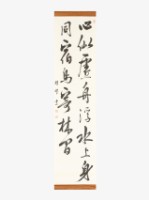 心似虚舟浮水上身
同宿鳥寄林間